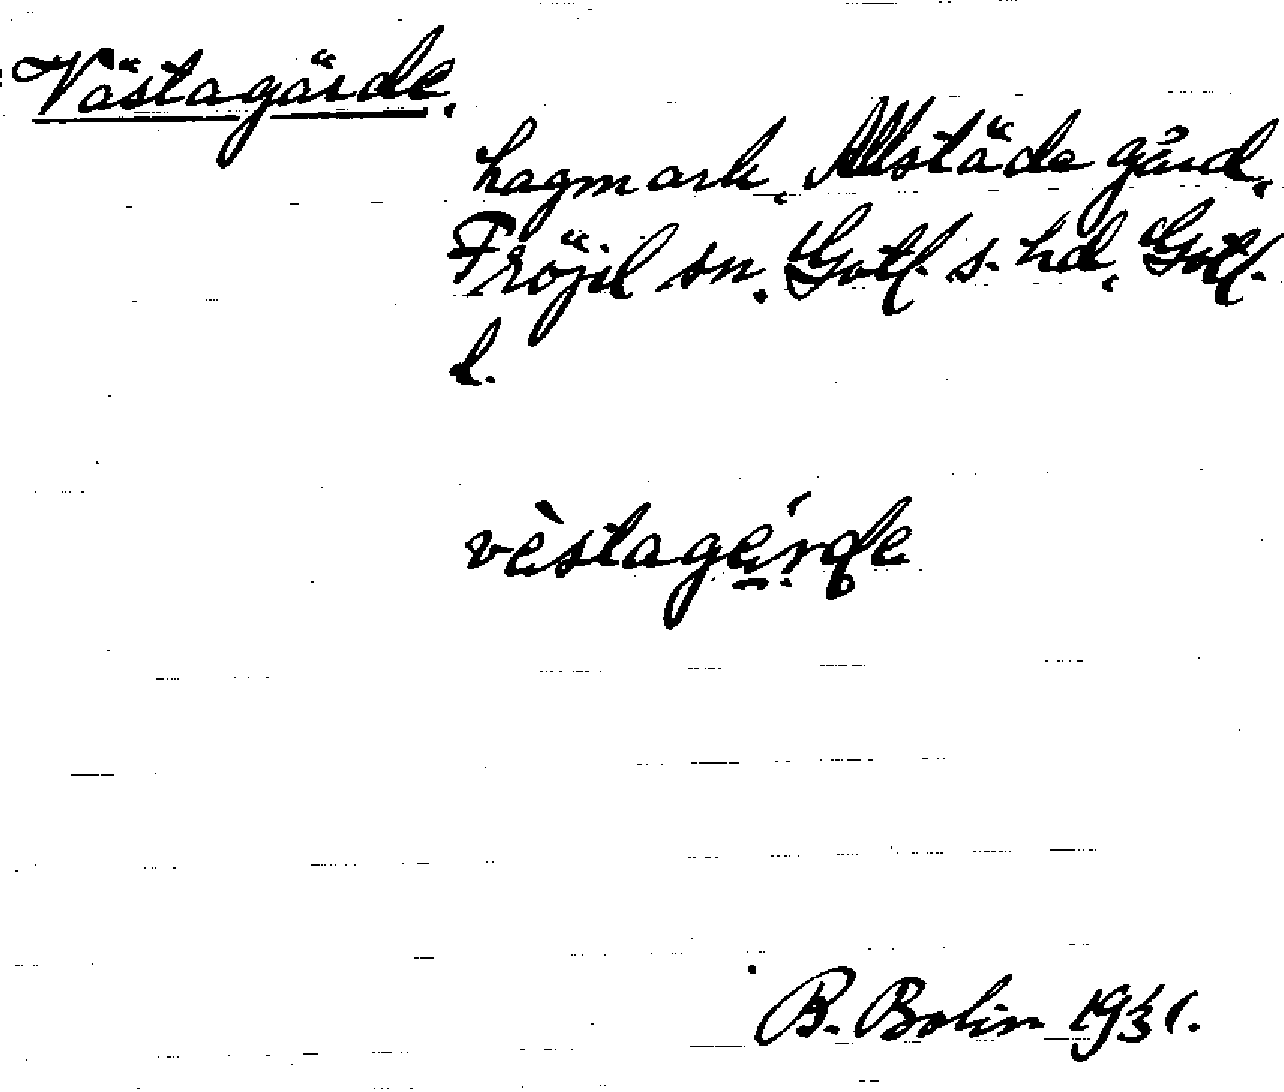 Västagärde.
hagmark, Allstäde gård,
Fröjil sn. Gotl. s. hd, Gotl.
l.
vèstagérde
B. Bolin 1931.